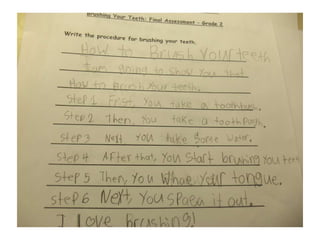 Brushing Your Teeth: Final Assessment - Grade 2
Write the procedure for brushing your teeth.
How to Brush Your teeth
I am going to show you that
How to Brush Your teeth.
Step 1 First, You take a toothbrus.
Step 2 Then, You take a tooth
Step 3 Next You take some water.
Step 4 After that, You Start brushing you teeth
Step 5 Then, You your tongue.
Step 6 Next, You it out.
I Love brushing!